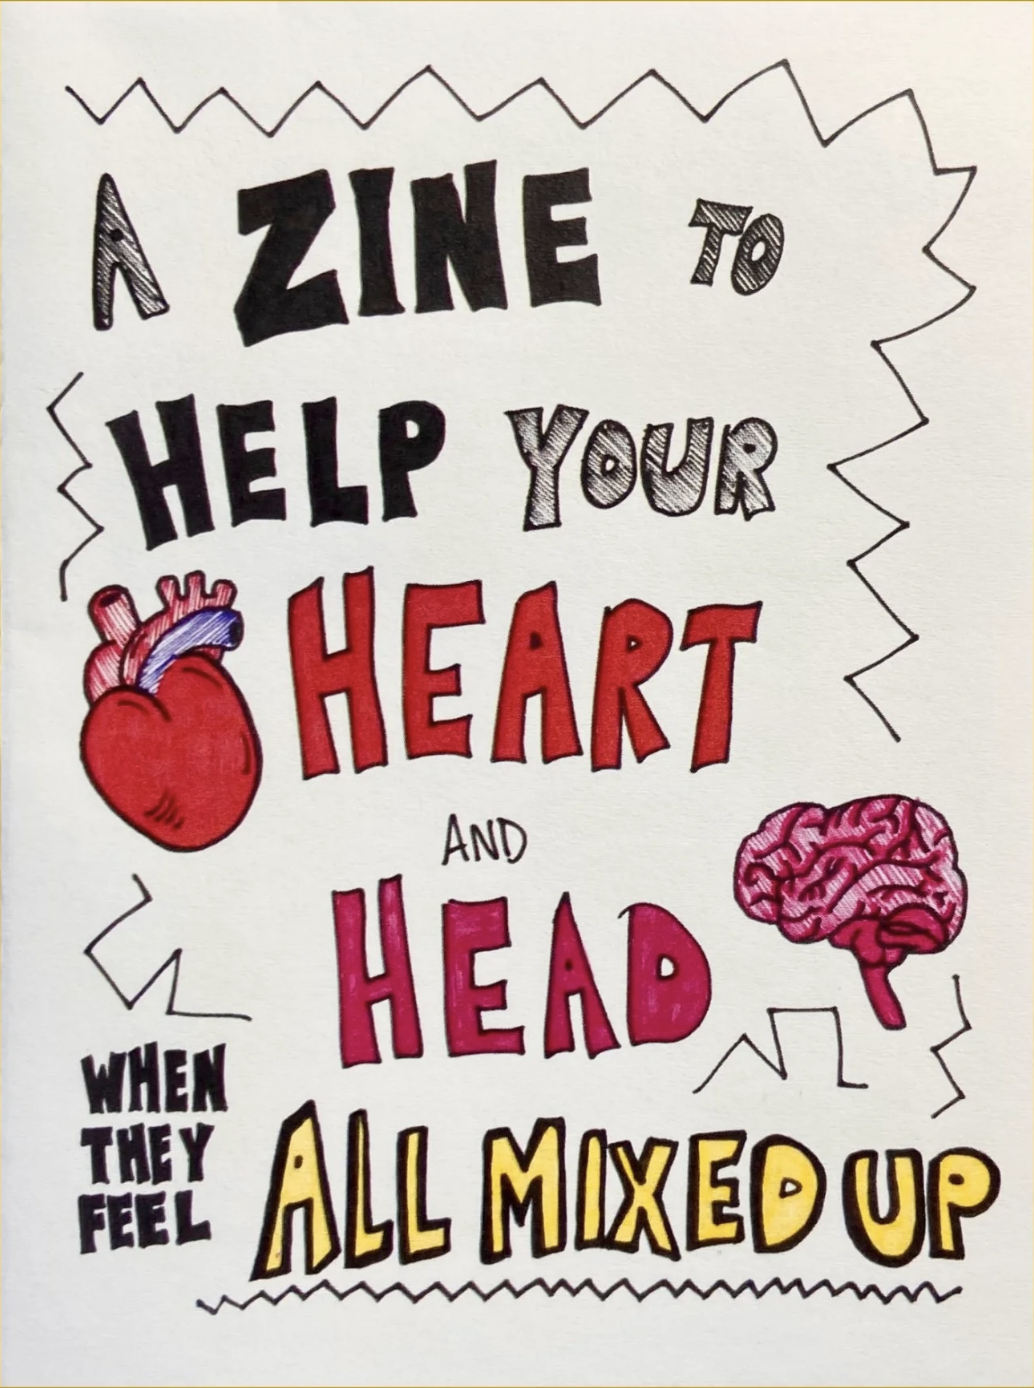 A ZINE TO
HELP YOUR
HEART
AND
HEAD
WHEN
THEY
FEEL
ALL MIXED UP